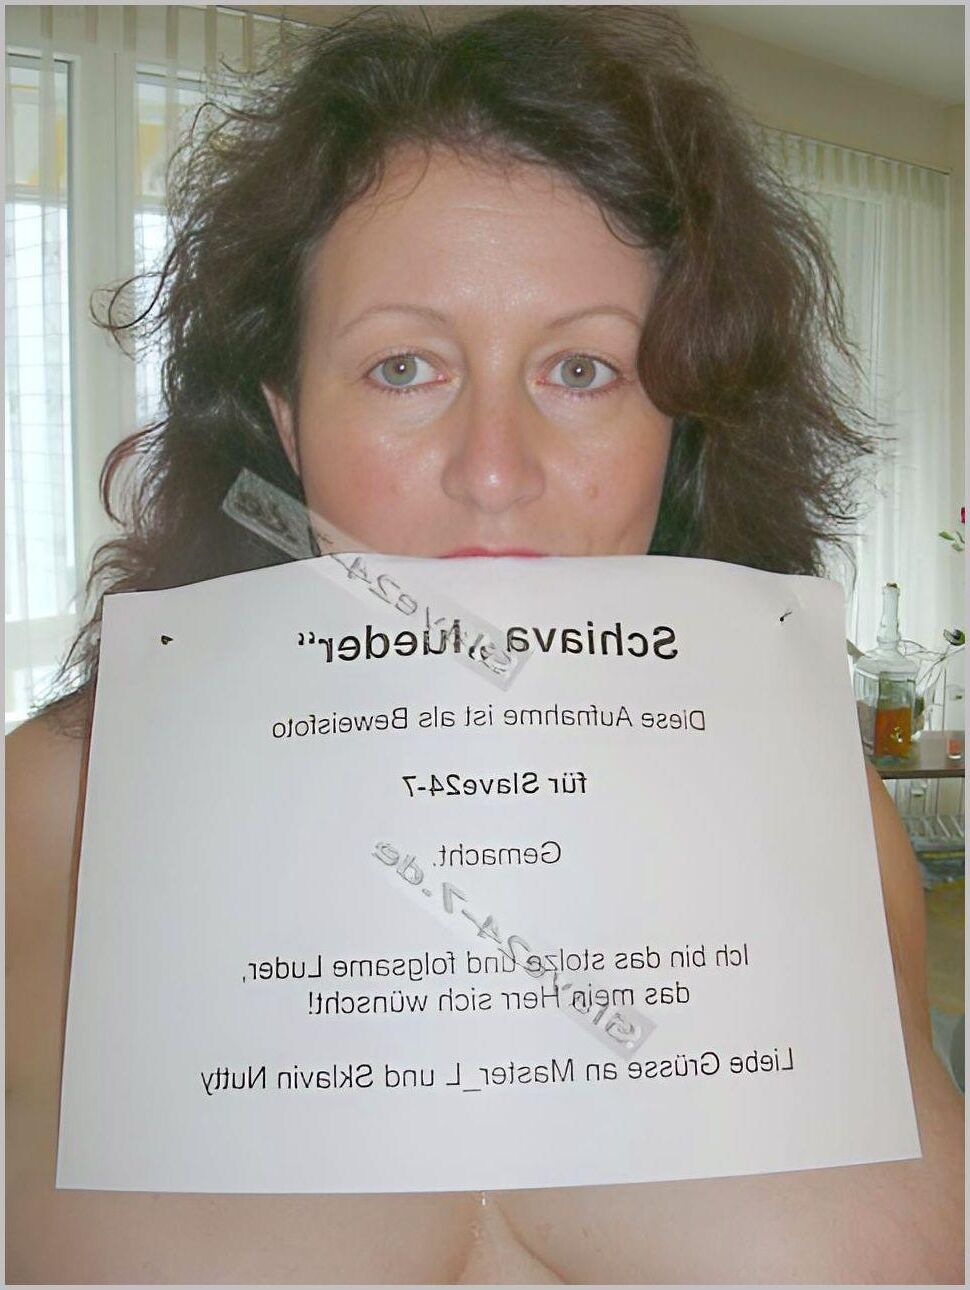 Schiava „lueder“
Diese Aufnahme ist als Beweisfoto
für Slave24-7
Gemacht.
Ich bin das stolze und folgsame Luder,
das mein Herr sich wünscht!
Liebe Grüsse an Master_L und Sklavin Nutty
slave24-7.de